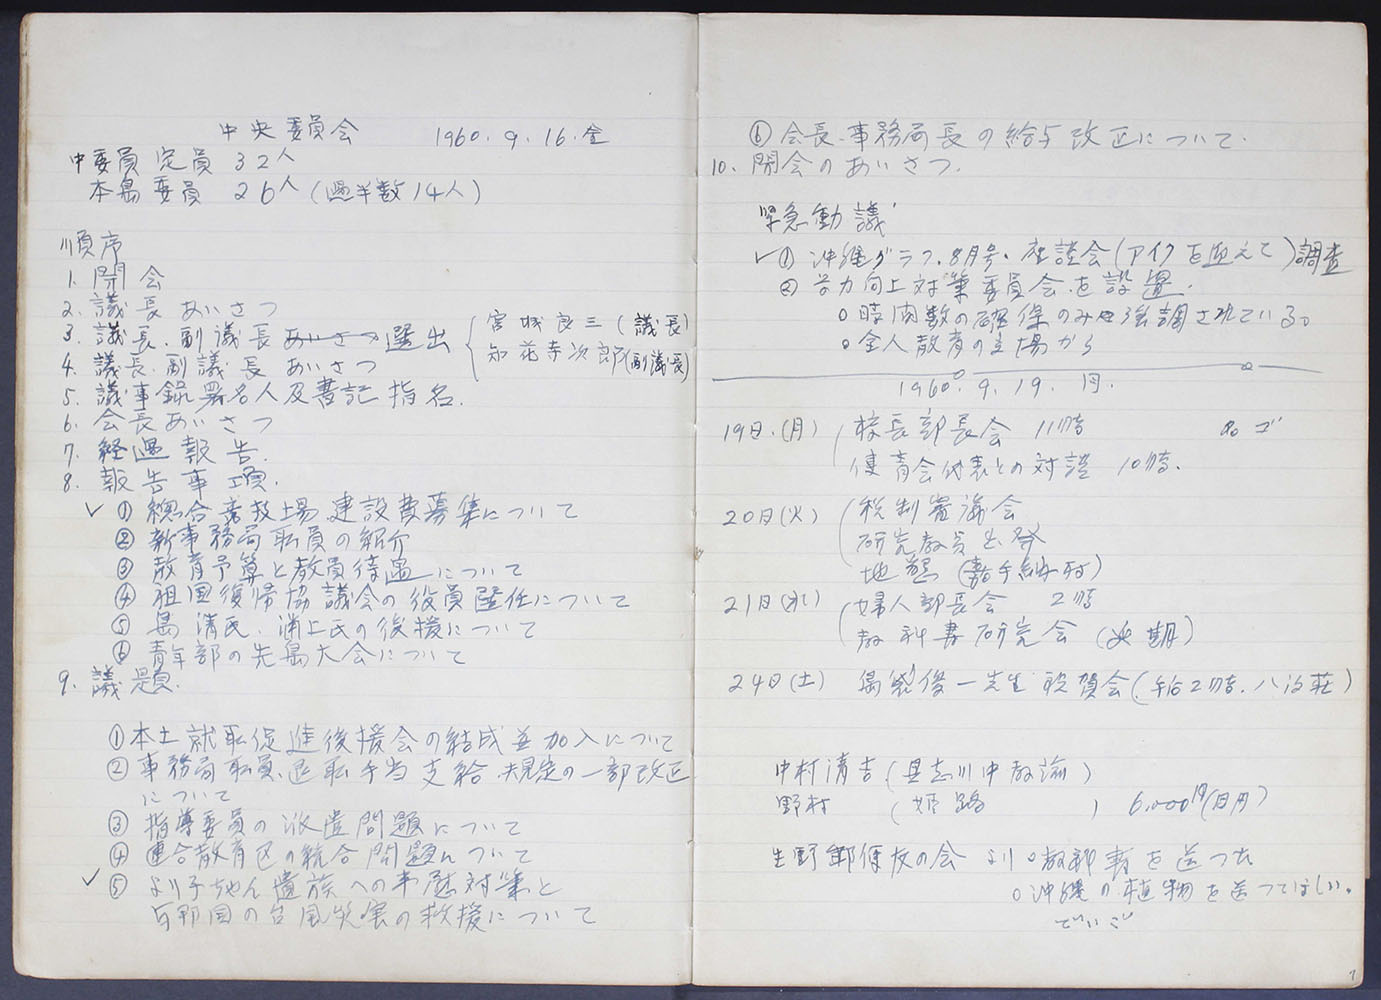 中央委員会 1960.9.16.金
中委員定員 32人
本島委員 26人(過半数14人)
順序
1. 開会
2. 議長あいさつ
3. 議長、副議長あいさつ選出 宮城良三(議長)
知花寺次郎(副議長)
4. 議長.副議長あいさつ
5. 議事録署名人及書記指名.
6. 会長あいさつ
7. 経過報告.
8. 報告事項.
✓ ① 総合 建設費募集について
② 新事務局職員の紹介
③ 教育予算と教員待遇について
④ 祖国復帰協議会の役員 について
⑤ 島清氏.渕上氏の後援について
⑥ 青年部の先島大会について
9. 議題.
① 本土就職促進後援会の結成並加入について
② 事務局職員、退職手当支給規定の一部改正
について
③ 指導委員の派遣問題について
④ 連合教育区の統合問題について
✓ ⑤ より子ちゃん遺族への 対策と
与那国の台風災害の救援について
⑥ 会長.事務局長の給与改正について.
10. 閉会のあいさつ.
緊急動議
✓ ① 沖縄グラフ.8月号.座談会(アイクを迎えて)調査
② 学力向上対策委員会を設置.
○ 時間数の確保のみ強調されている。
○ 全人教育の立場から
1960.9.19.月.
19日.(月) 校長部長会 11時
青会代表との対談 10時.
20日(火) 税制審議会
研究教員出発
地懇(嘉手納村)
21日(水) 婦人部長会 2時
教科書研究会(延期)
24日(土) 島袋俊一先生祝賀会(午后2時.八汐荘)
中村清吉(具志川中教諭)
野村 (姫路 ) 6,000円(日円)
生野郵便友の会より○教部書を送った
○沖縄の植物を送ってほしい。
でいご
7